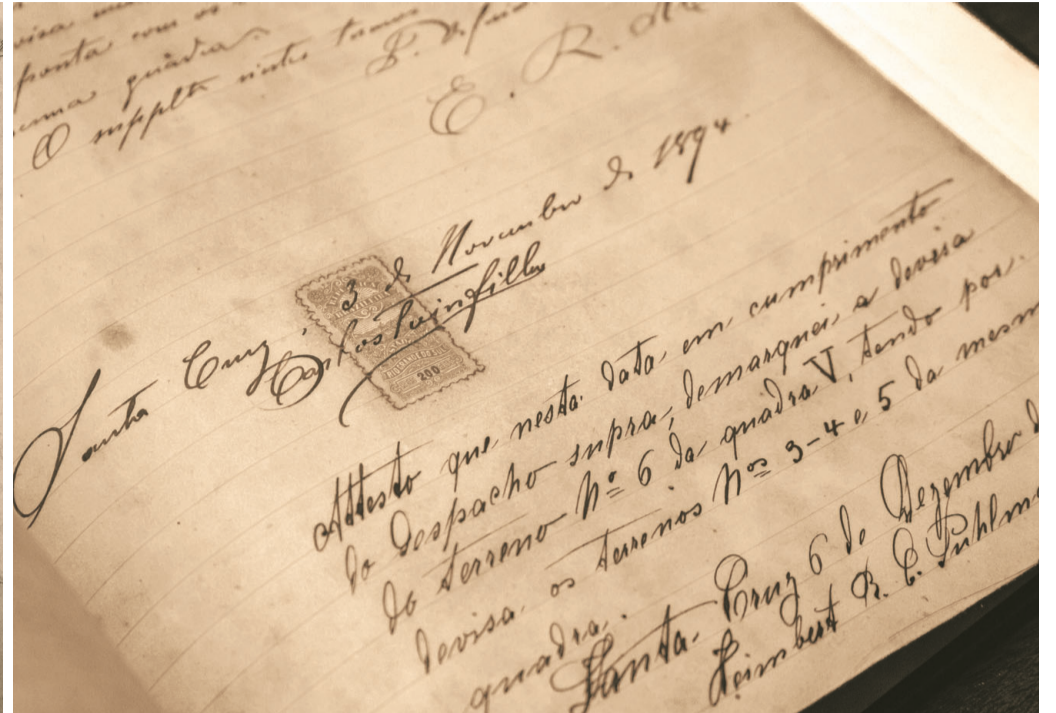 ponta com os
uma quadra
O supplte nestes termos
P. deferimento
E. R. M.
Santa Cruz, 3 de Novembro de 1894.
Carlos Trein filho
200
Attesto que nesta data, em cumprimento
do despacho supra, demarquei a devisa
do terreno Nº 6 da quadra V, tendo por
devisa os terrenos Nos 3-4 e 5 da mesm
quadra.
Santa Cruz 6 de Dezembro d
Heimbert R. C. Puhlm